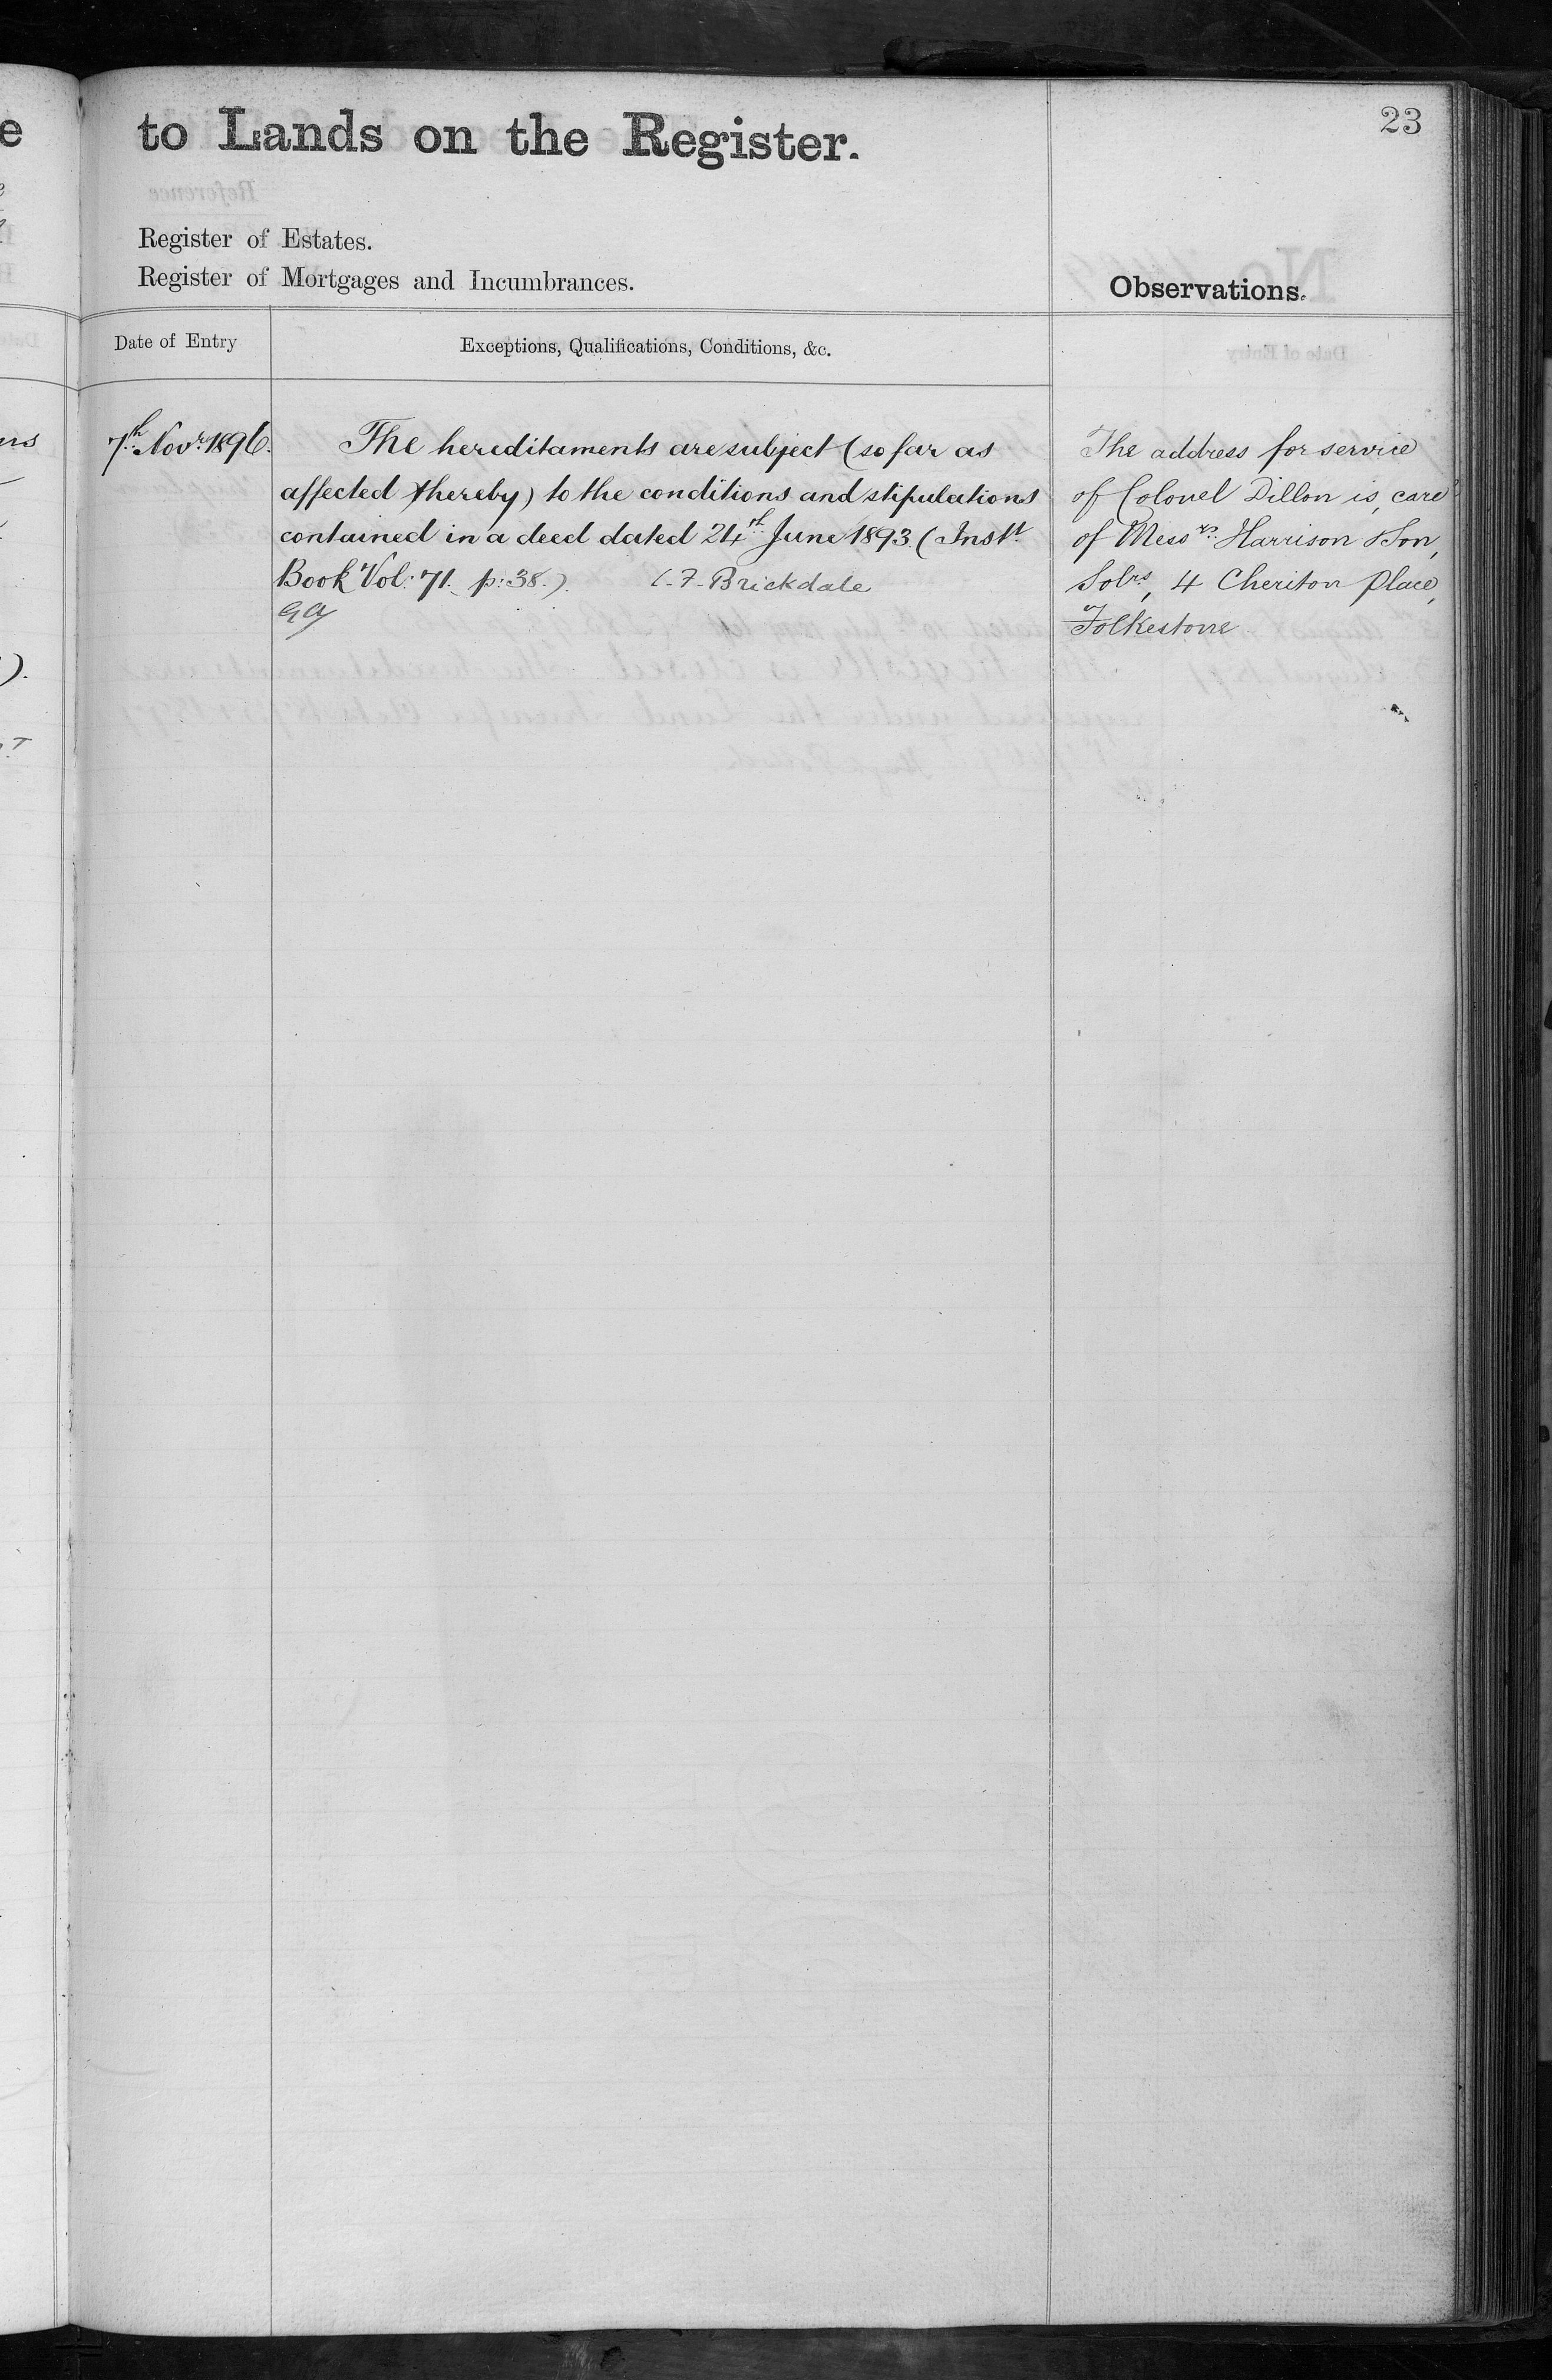 23
to Lands on the Register.
Register of Estates.
Register of Mortgages and Incumbrances.
Observations.
Date of Entry
Exceptions, Qualifications, Conditions, &c.
7th Novr. 1896.
The hereditaments are subject (so far as
affected thereby) to the conditions and stipulations
contained in a deed dated 24th June 1893. (Instt
Book Vol: 71. p: 38.) C. F. Brickdale
The address for service
of Colonel Dillon is, care
of Messrs. Harrison & Son,
Solrs, 4 Cheriton Place,
Folkestone